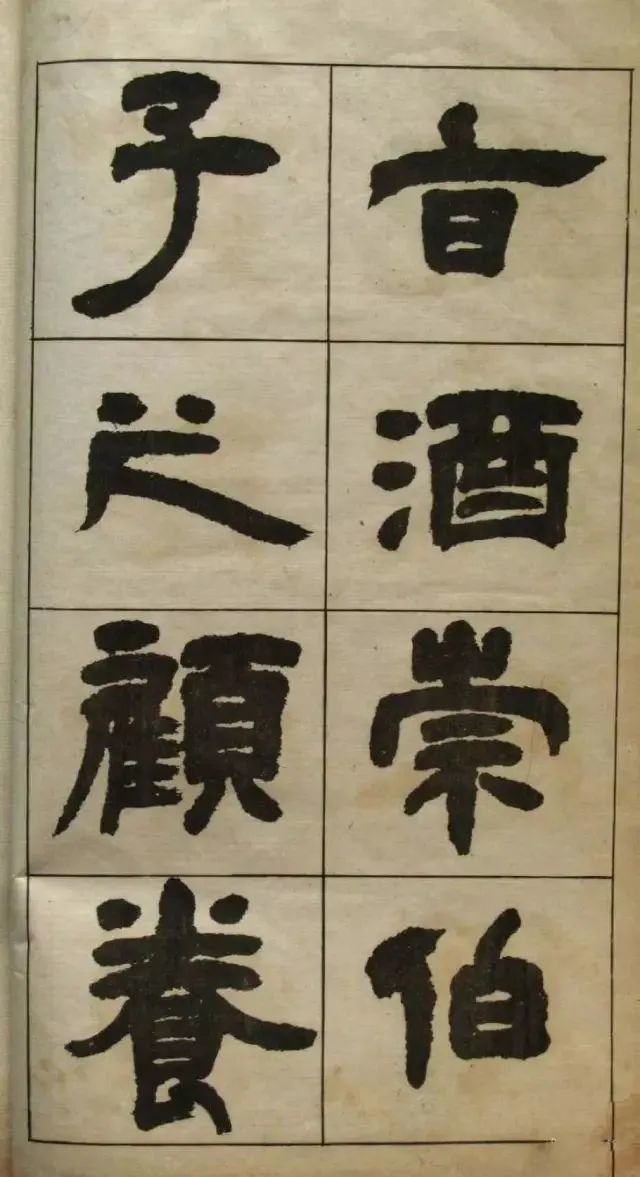 旨酒崇伯
子之顧養